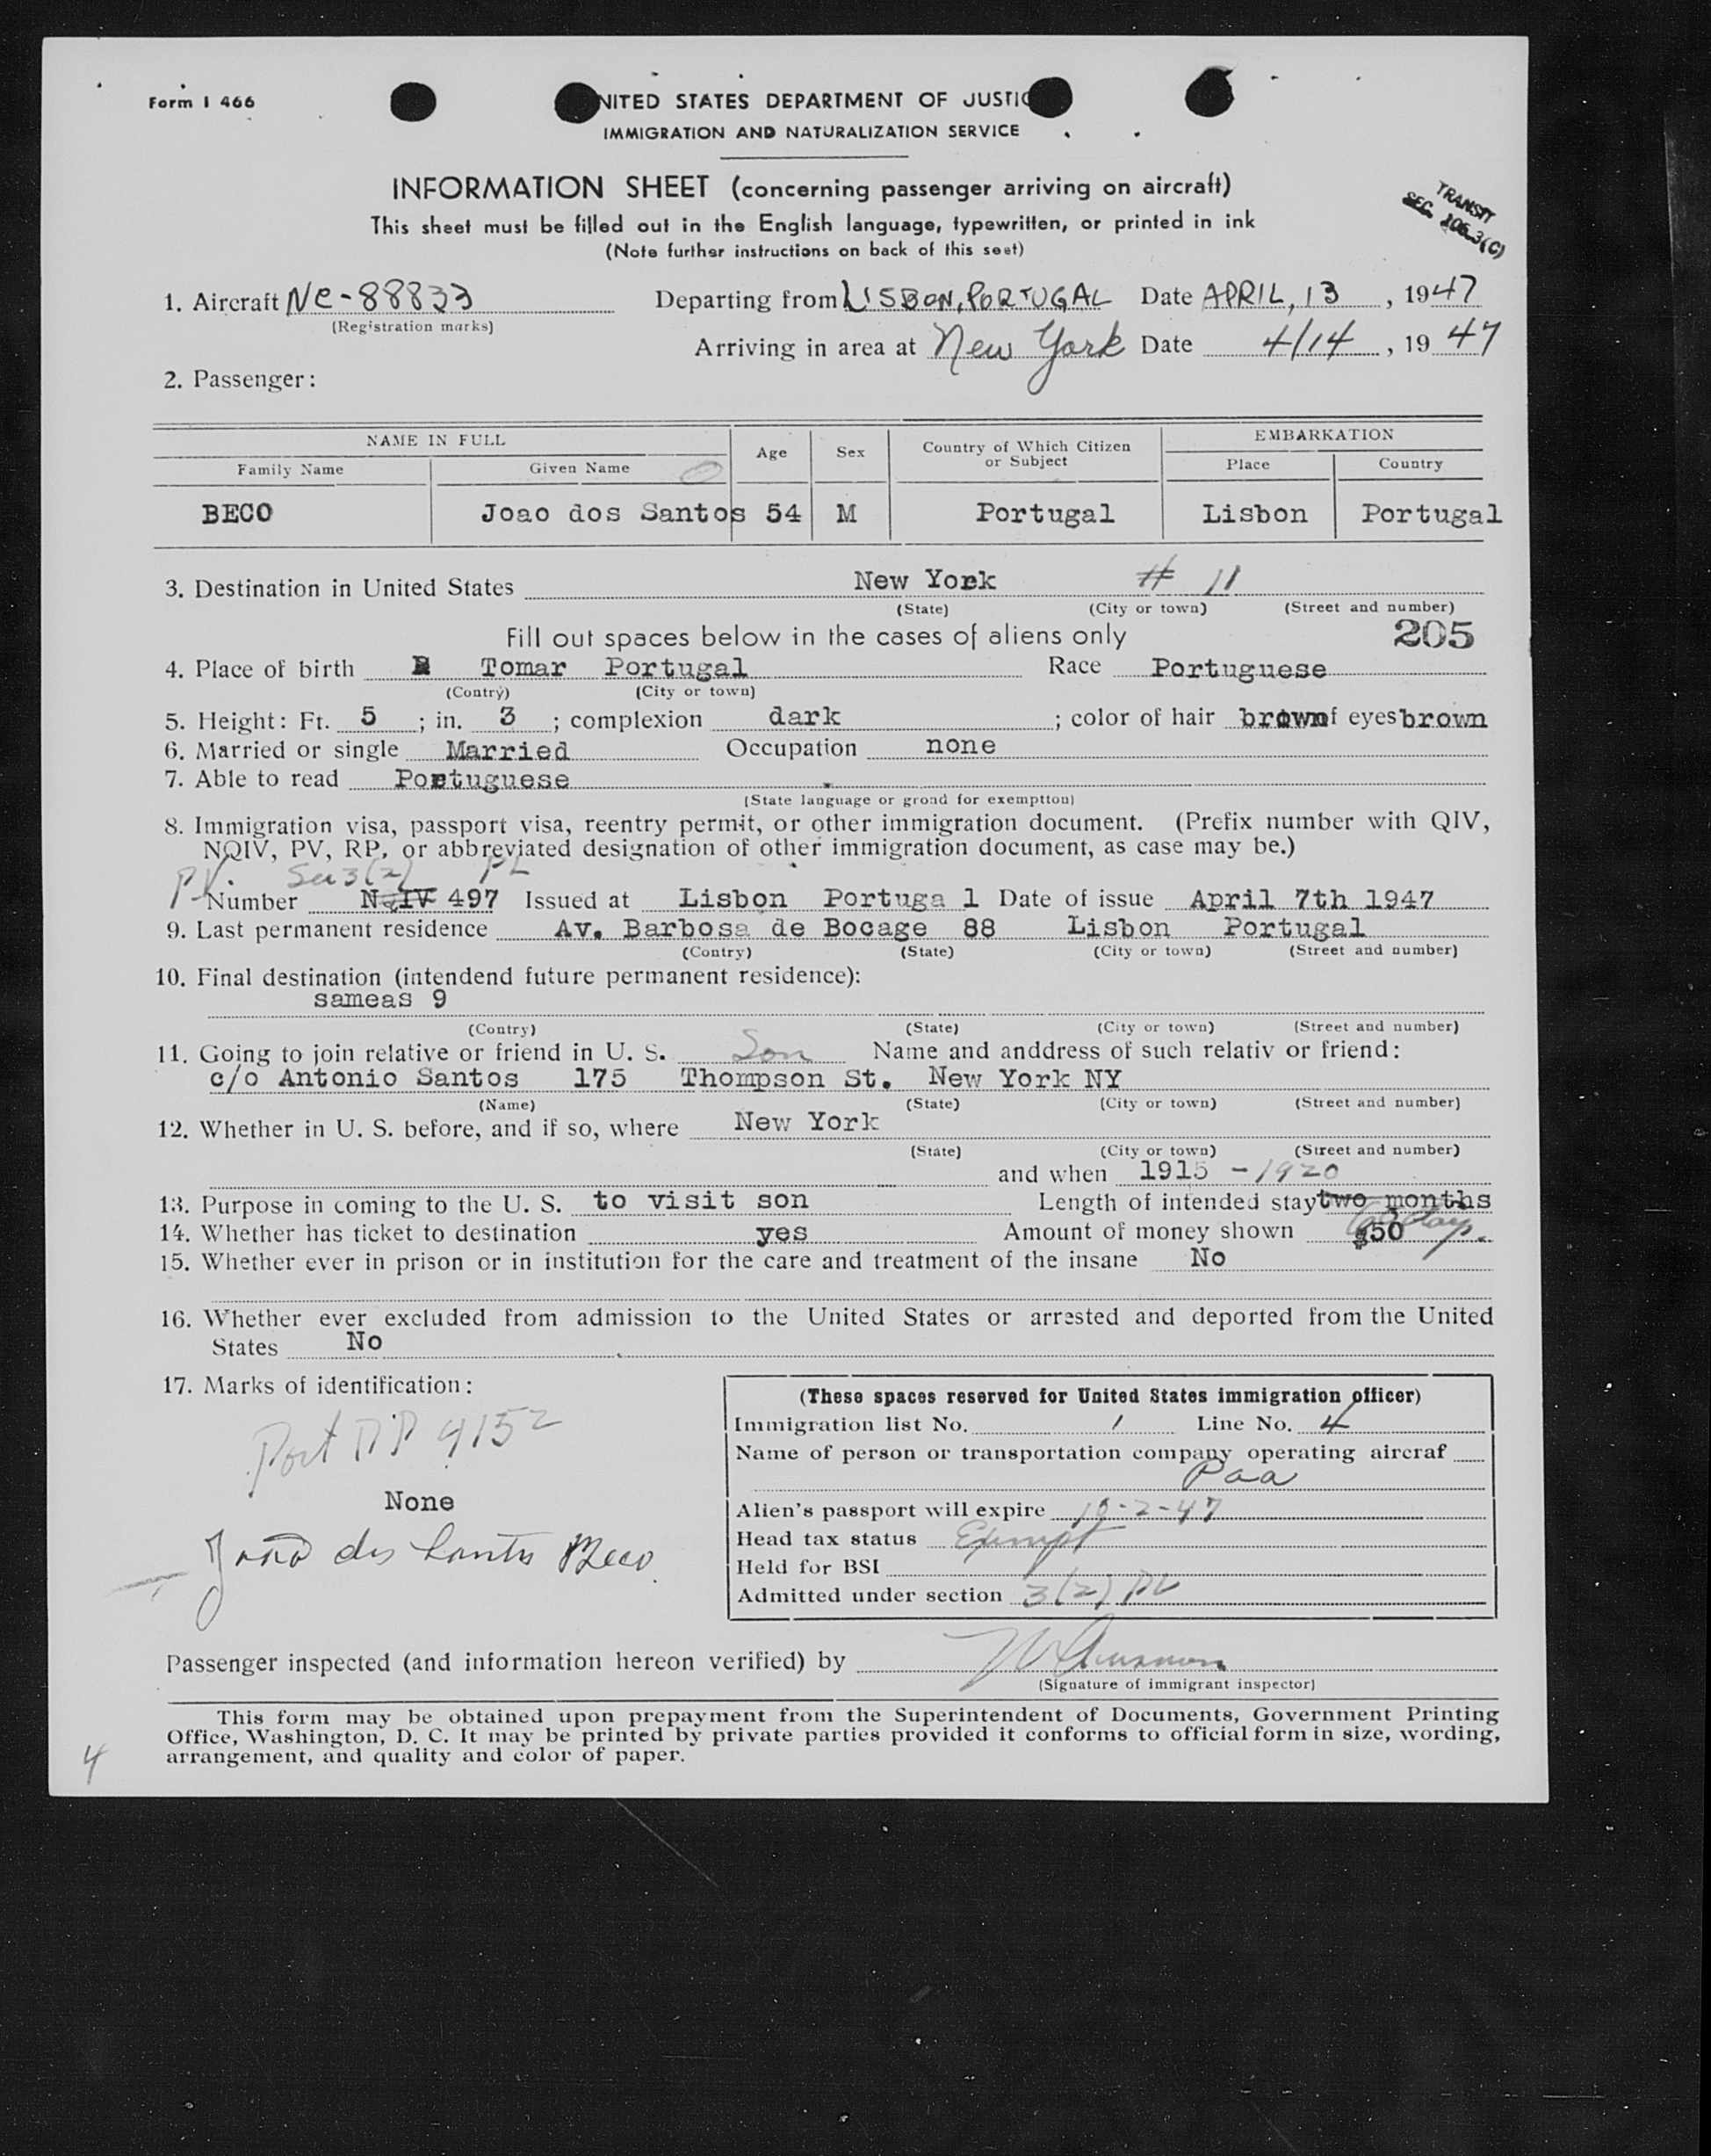 Form I 466
NITED STATES DEPARTMENT OF JUSTIC
IMMIGRATION AND NATURALIZATION SERVICE
INFORMATION SHEET (concerning passenger arriving on aircraft)
This sheet must be filled out in the English language, typewritten, or printed in ink
(Note further instructions on back of this seet)
TRANSIT
SEC. 106.3(C)
1. Aircraft NC-88833 Departing from LISBON, PORTUGAL Date APRIL, 13, 1947
(Registration marks)
Arriving in area at New York Date 4/14, 1947
2. Passenger:
NAME IN FULL Age Sex Country of Which Citizen or Subject EMBARKATION
Family Name Given Name Place Country
BECO Joao dos Santos 54 M Portugal Lisbon Portugal
3. Destination in United States New York # 11
(State) (City or town) (Street and number)
Fill out spaces below in the cases of aliens only 205
4. Place of birth Tomar Portugal Race Portuguese
(Contry) (City or town)
5. Height: Ft. 5 ; in. 3 ; complexion dark ; color of hair brown of eyes brown
6. Married or single Married Occupation none
7. Able to read Portuguese
(State language or groad for exemptton)
8. Immigration visa, passport visa, reentry permit, or other immigration document. (Prefix number with QIV,
NQIV, PV, RP, or abbreviated designation of other immigration document, as case may be.)
PV. Sec 3(2) PL
Number NQIV 497 Issued at Lisbon Portuga l Date of issue April 7th 1947
9. Last permanent residence Av. Barbosa de Bocage 88 Lisbon Portugal
(Contry) (State) (City or town) (Street and number)
10. Final destination (intendend future permanent residence):
sameas 9
(Contry) (State) (City or town) (Street and number)
11. Going to join relative or friend in U. S. Son Name and anddress of such relativ or friend:
c/o Antonio Santos 175 Thompson St. New York NY
(Name) (State) (City or town) (Street and number)
12. Whether in U. S. before, and if so, where New York
(State) (City or town) (Street and number)
and when 1915 - 1920
13. Purpose in coming to the U. S. to visit son Length of intended stay two months
14. Whether has ticket to destination yes Amount of money shown $50
15. Whether ever in prison or in institution for the care and treatment of the insane No
16. Whether ever excluded from admission to the United States or arrested and deported from the United
States No
17. Marks of identification:
Port PP 4152
None
João dos Santos Beco
(These spaces reserved for United States immigration officer)
Immigration list No. 1 Line No. 4
Name of person or transportation company operating aircraf
Paa
Alien's passport will expire 10-2-47
Head tax status Exempt
Held for BSI
Admitted under section 3(2) PL
Passenger inspected (and information hereon verified) by
(Signature of immigrant inspector)
This form may be obtained upon prepayment from the Superintendent of Documents, Government Printing
Office, Washington, D. C. It may be printed by private parties provided it conforms to official form in size, wording,
arrangement, and quality and color of paper.
4